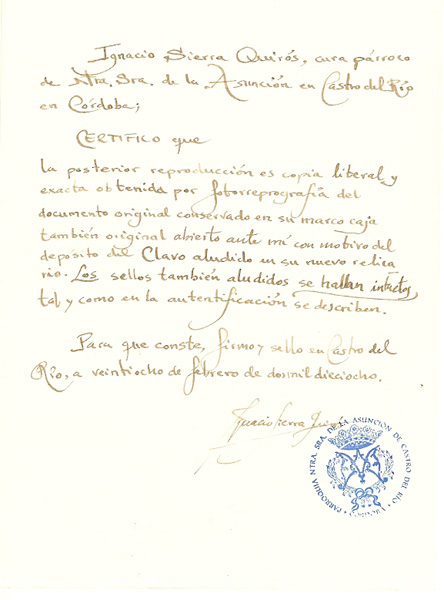 Ignacio Sierra Quirós, cura párroco
de Ntra. Sra. de la Asunción en Castro del Río
en Córdoba;
CERTIFICO que
la posterior reproducción es copia literal y
exacta obtenida por fotorreprografía del
documento original conservado en su marco caja
también original abierto ante mí con motivo del
depósito del Clavo aludido en su nuevo relica
rio. Los sellos también aludidos se hallan intactos
tal y como en la autentificación se describen.
Para que conste, firmo y sello en Castro del
Río, a veintiocho de febrero de dosmil dieciocho.
Ignacio Sierra Quirós
PARROQUIA NTRA. SRA. DE LA ASUNCIÓN DE CASTRO DEL RÍO
CÓRDOBA